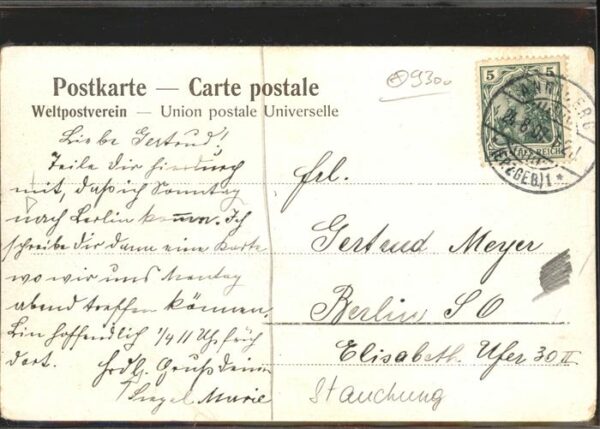 Postkarte — Carte postale
Weltpostverein — Union postale Universelle
9300
Liebe Gertrud!
Teile dir hierdurch
mit, daß ich Sonntag
nach Berlin komme. Ich
schreibe dir dann eine Karte
wo wir uns Montag
abend treffen können.
Bin hoffentlich 1/4 11 Uhr früh
dort. Hrdl. Gruß deine
Marie
5 5
DEUTSCHES REICH
ANNABERG
(ERZGEB.) 1. *
Frl.
Gertrud Meyer
Berlin SO
Elisabeth. Ufer 30 II
Stauchung